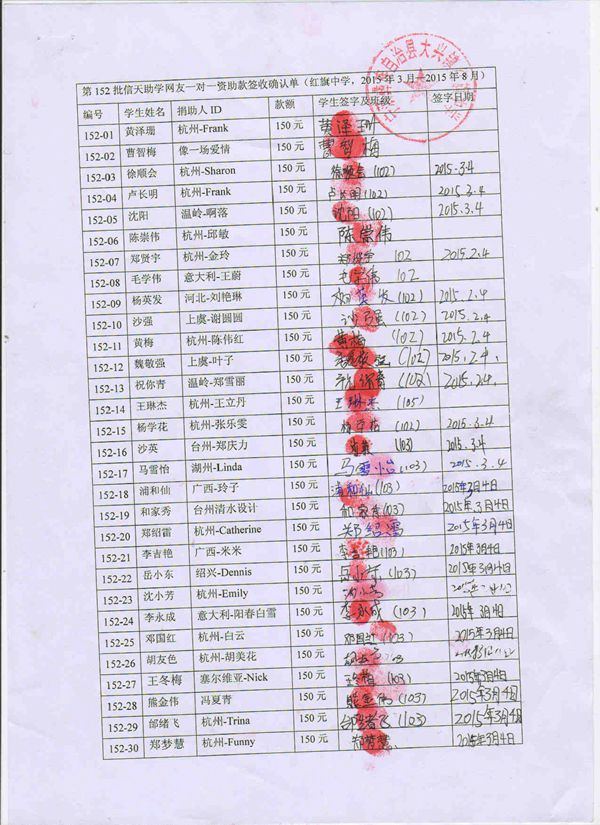 治县大兴镇
第 152 批信天助学网友一对一资助款签收确认单（红旗中学，2015 年 3 月—2015 年 8 月）
编号 学生姓名 捐助人 ID 款额 学生签字及班级 签字日期
152-01 黄泽珊 杭州-Frank 150 元 黄泽珊
152-02 曹智梅 像一场爱情 150 元 曹智梅
152-03 徐顺会 杭州-Sharon 150 元 徐顺会(102) 2015.3.4
152-04 卢长明 杭州-Frank 150 元 卢长明(102) 2015.3.4
152-05 沈阳 温岭-啊落 150 元 沈阳(102) 2015.3.4
152-06 陈崇伟 杭州-邱敏 150 元 陈崇伟
152-07 郑贤宇 杭州-金玲 150 元 郑贤宇 102 2015.2.4
152-08 毛学伟 意大利-王蔚 150 元 毛学伟 102
152-09 杨英发 河北-刘艳琳 150 元 杨英发(102) 2015.2.4
152-10 沙强 上虞-谢圆圆 150 元 沙强(102) 2015.2.4
152-11 黄梅 杭州-陈伟红 150 元 黄梅(102) 2015.2.4
152-12 魏敬强 上虞-叶子 150 元 (102) 2015.2.4.
152-13 祝你青 温岭-郑雪丽 150 元 (102) 2015.2.4.
152-14 王琳杰 杭州-王立丹 150 元 王琳杰(105)
152-15 杨学花 杭州-张乐雯 150 元 杨学花(102) 2015.3.4
152-16 沙英 台州-郑庆力 150 元 (103) 2015.3.4
152-17 马雪怡 湖州-Linda 150 元 马雪怡(103) 2015.3.4
152-18 浦和仙 广西-玲子 150 元 浦和仙(103) 2015年3月4日
152-19 和家秀 台州清水设计 150 元 和家秀(103) 2015年3月4日
152-20 郑绍雷 杭州-Catherine 150 元 郑绍雷 2015年3月4日
152-21 李吉艳 广西-米米 150 元 李吉艳(103) 2015年3月4日
152-22 岳小东 绍兴-Dennis 150 元 岳小东(103) 2015年3月4日
152-23 沈小芳 杭州-Emily 150 元 沈小芳
152-24 李永成 意大利-阳春白雪 150 元 李永成(103) 2015年3月4日
152-25 邓国红 杭州-白云 150 元 邓国红(103) 2015年3月4日
152-26 胡友色 杭州-胡美花 150 元
152-27 王冬梅 塞尔维亚-Nick 150 元 (103) 2015年3月4日
152-28 熊金伟 冯夏青 150 元 熊金伟(103) 2015年3月4日
152-29 邰绪飞 杭州-Trina 150 元 邰绪飞(103) 2015年3月4日
152-30 郑梦慧 杭州-Funny 150 元 郑梦慧 2015年3月4日